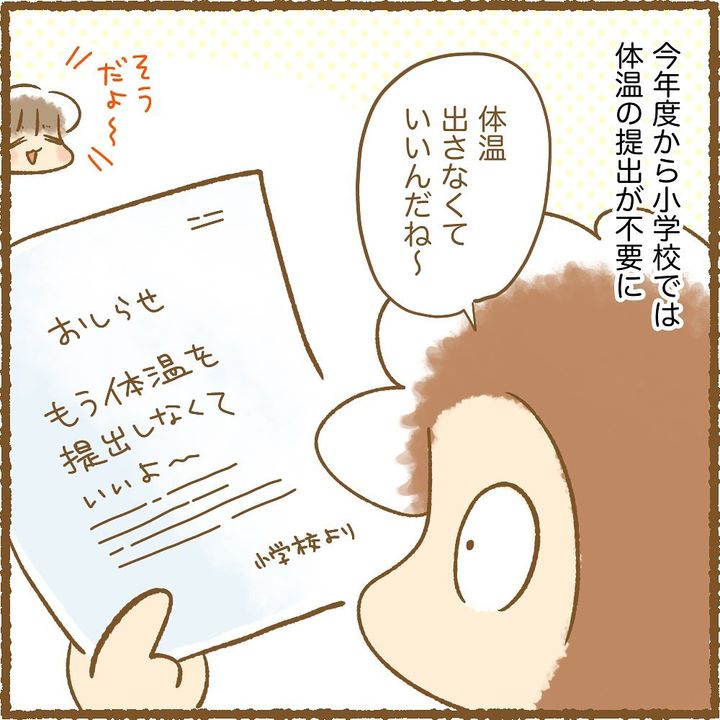 今年度から小学校では
体温の提出が不要に
体温
出さなくて
いいんだね～
そう
だよ～
おしらせ
もう体温を
提出しなくて
いいよ～
小学校より